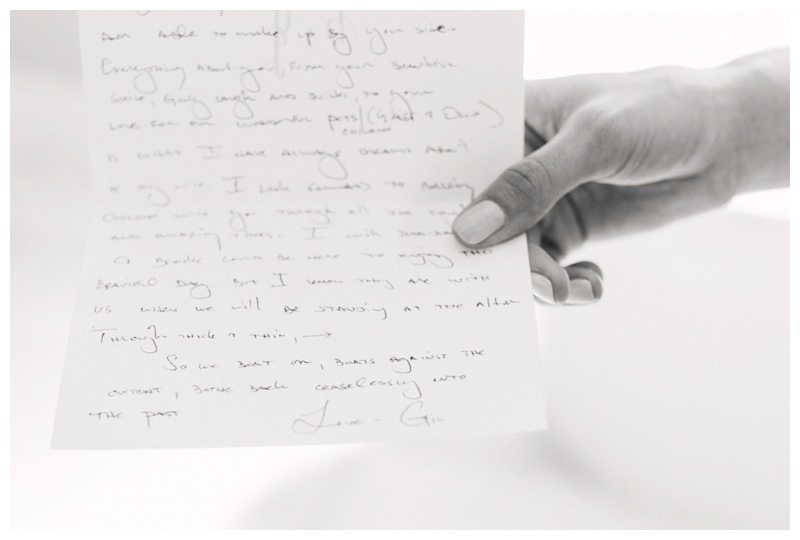 am able to wake up by your side.
Everything about you, from your beautiful
smile, goofy laugh and quirks, to your
love for our wonderful pets/(Gracie &
children
is what I have always dreamt about
of my wife. I look forward to raising
children with you through all the tough
and amazing times. I wish
& could be here to enjoy this
beautiful day but I know they are with
us when we will be standing at the altar
Through thick & thin, →
So we beat on, boats against the
current, borne back ceaselessly into
the past
Love - Gil